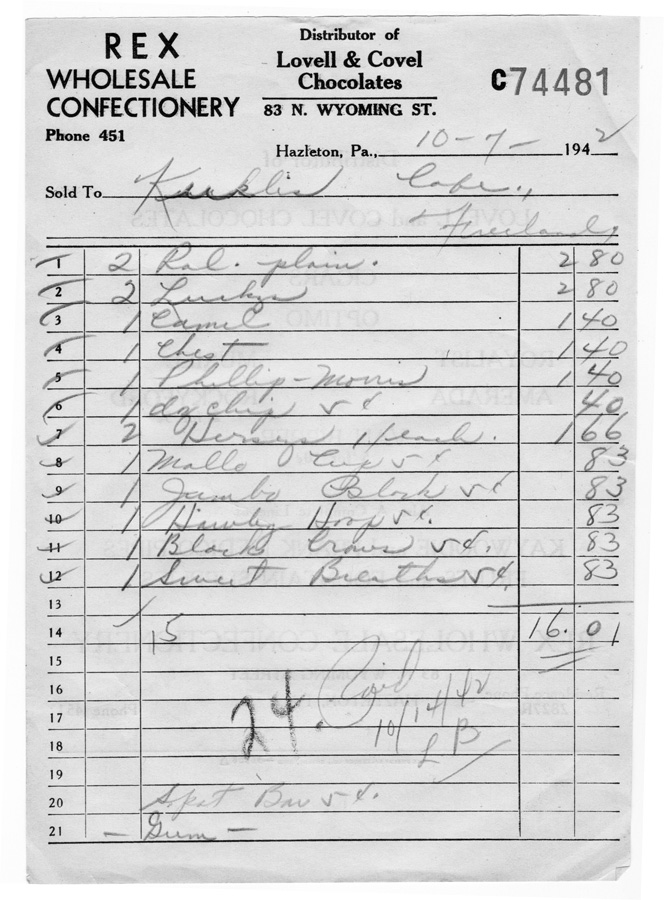 REX
WHOLESALE
CONFECTIONERY
Phone 451
Distributor of
Lovell & Covel
Chocolates
83 N. WYOMING ST.
C74481
Hazleton, Pa., 10-7- 1942
Sold To Cafe.,
Freeland,
1 2 Ral. plain. 2 80
2 2 Luckys 2 80
3 1 Camel 1 40
4 1 Chest 1 40
5 1 Phillip-Morris 1 40
6 1 5¢ 40
7 2 Herseys 1 each. 1 66
8 1 Mallo Cup 5¢ 83
9 1 Jumbo Block 5¢ 83
10 1 Hawley Hoop 5¢. 83
11 1 Black Crows 5¢. 83
12 1 Sweet Breaths 5¢. 83
13
14 15 16.01
15
16 Paid
17 24. 10/14/42
18 LB
19
20 Bar 5¢.
21 - Gum -